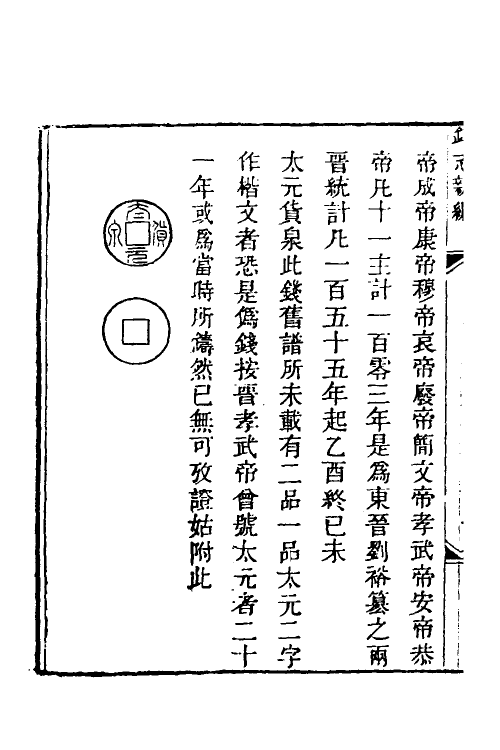 錢志新編
帝成帝康帝穆帝哀帝廢帝簡文帝孝武帝安帝恭
帝凡十一主計一百零三年是爲東晉劉裕簒之兩
晉統計凡一百五十五年起乙酉終已未
太元貨泉此錢舊譜所未載有二品一品太元二字
作楷文者恐是僞錢按晉孝武帝曾號太元者二十
一年或爲當時所鑄然已無可攷證姑附此